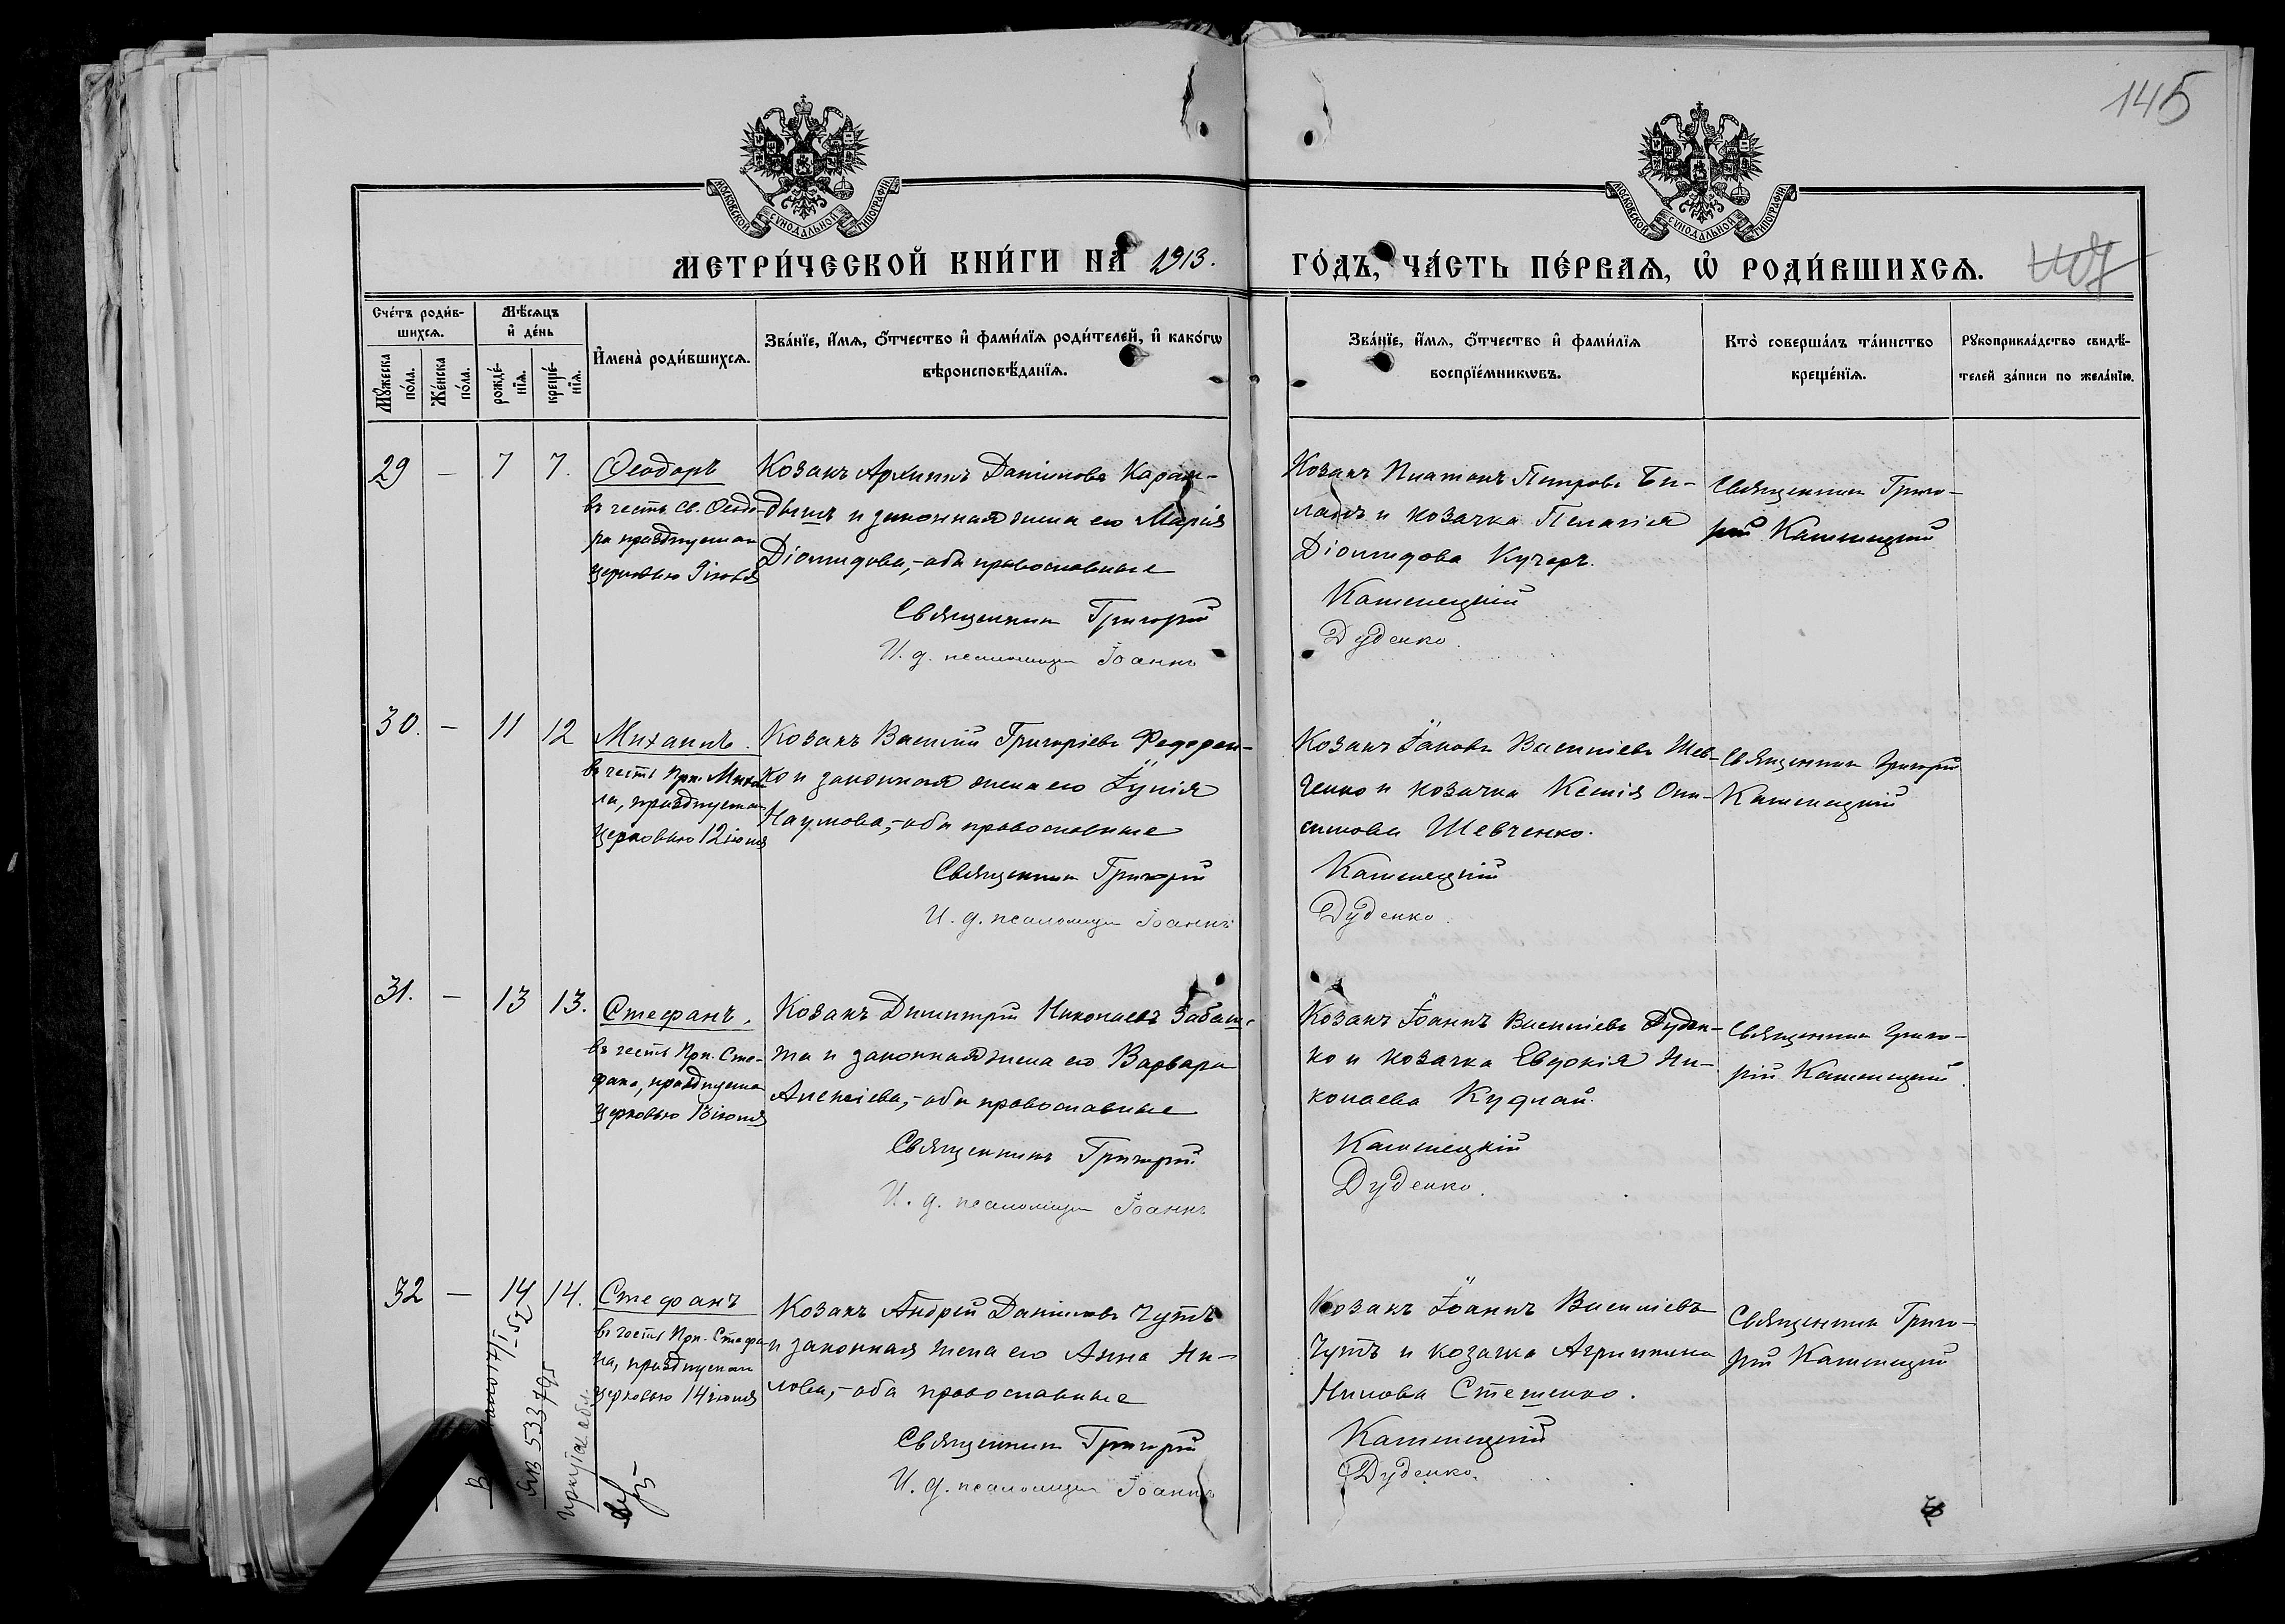 145
МОСКОВСКОЙ СѴНОДАЛЬНОЙ ТИПОГРАФІИ
МОСКОВСКОЙ СѴНОДАЛЬНОЙ ТИПОГРАФІИ
МЕТРИ́ЧЕСКОЙ КНИ́ГИ НА 1913.
ГО́ДЪ, ЧА́СТЬ ПЕ́РВАѦ, Ѽ РОДИ́ВШИХСѦ.
Сче́тъ роди́в-
шихсѧ.
Мꙋ́жеска
по́ла.
Же́нска
по́ла.
Мѣ́сѧцъ
и҆ де́нь
рожде́-
нїѧ.
креще́-
нїѧ.
И҆мена̀ роди́вшихсѧ.
Зва́нїе, и҆́мѧ, ѻ҆́тчество и҆ фами́лїѧ роди́телей, и҆ како́гѡ
вѣроисповѣ́данїѧ.
Зва́нїе, и҆́мѧ, ѻ҆́тчество и҆ фами́лїѧ
воспрїе́мникѡвъ.
Кто̀ соверша́лъ та́инство
креще́нїѧ.
Рꙋкоприкла́дство свидѣ́-
телей за́писи по жела́нїю.
29 — 7 7.
Ѳеодоръ
въ честь Св. Ѳеодо-
ра празднуемаго
церковью
Козакъ Архиппъ Даніиловъ
и законная жена его Марія
Діомидова,-оба православные
Священникъ Григорій
И. д. псаломщика Іоаннъ
Козакъ Платонъ Петровъ Би-
и козачка Пелагія
Діомидова Кучеръ.
Каменецкій
Дуденко.
Священникъ Григо-
рій Каменецкій
30. — 11 12
Михаилъ.
въ честь Прп. Михаи-
ла, празднуемаго
церковью 12 іюня
Козакъ Василій Григоріевъ Федорен-
ко и законная жена его Іулія
Наумова,-оба православные
Священникъ Григорій
И. д. псаломщика Іоаннъ
Козакъ Іаковъ Василіевъ Шев-
ченко и козачка Ксенія Они-
симова Шевченко.
Каменецкій
Дуденко.
Священникъ Григорій
Каменецкій
31. — 13 13.
Стефанъ.
въ честь Прп. Сте-
фана, празднуемаго
церковью 13 іюня
Козакъ Димитрій Николаевъ Забаш-
та и законная жена его Варвара
Алексіева,-оба православные
Священникъ Григорій
И. д. псаломщика Іоаннъ
Козакъ Іоаннъ Василіевъ Дуден-
ко и козачка Евдокія Ни-
колаева Кудлай.
Каменецкій
Дуденко.
Священникъ Григо-
рій Каменецкій.
32 — 14 14.
Стефанъ
въ честь Прп. Стефа-
на, празднуемаго
церковью 14 іюня
Козакъ Андрей Даніиловъ Чутъ
и законная жена его Анна Ни-
лова,-оба православные
Священникъ Григорій
И. д. псаломщика Іоаннъ
Козакъ Іоаннъ Василіевъ
Чутъ и козачка Агриппина
Нилова Стешенко.
Каменецкій
Дуденко.
Священникъ Григо-
рій Каменецкій